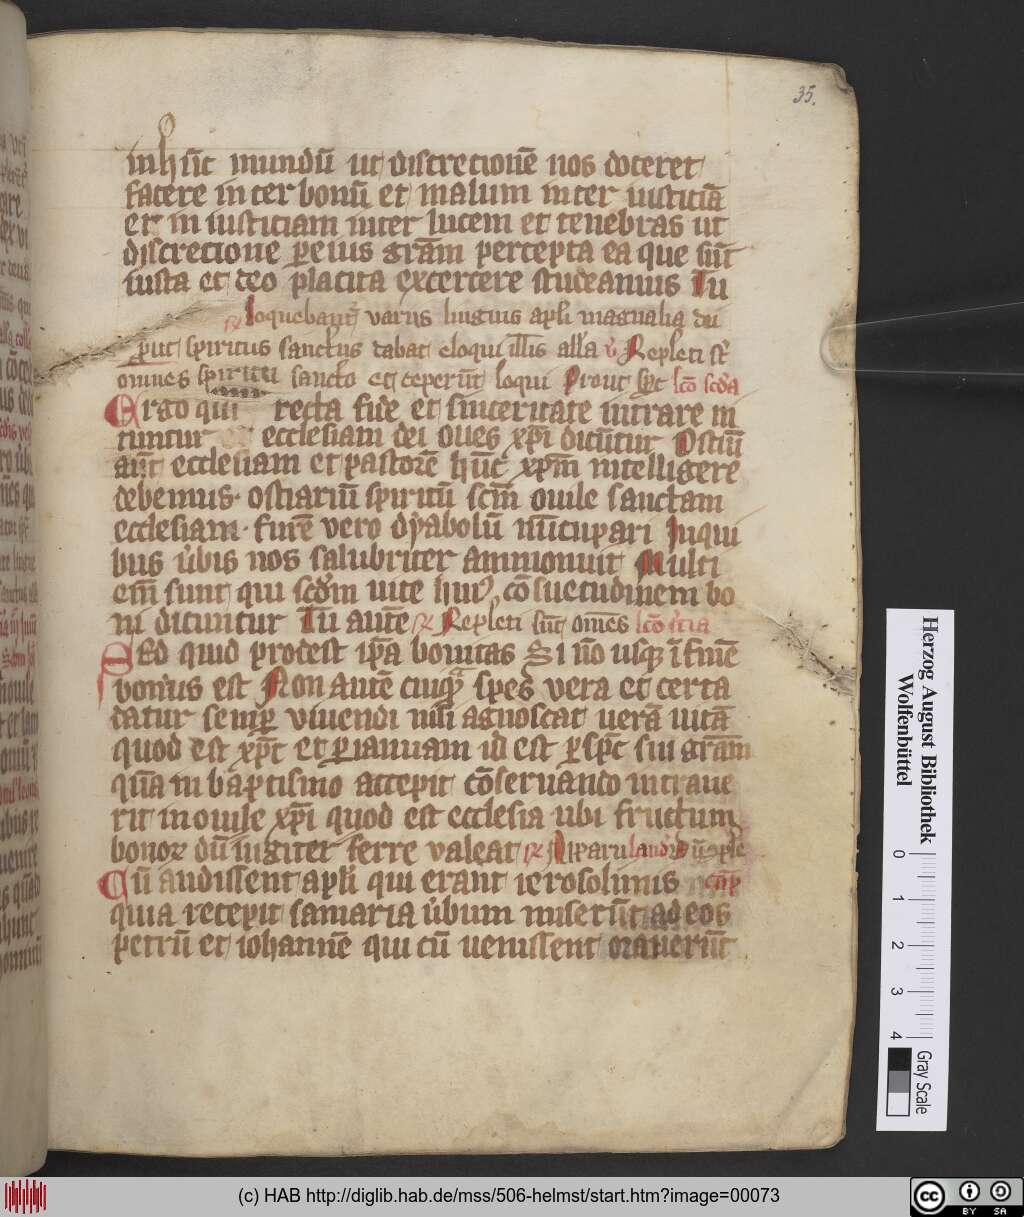 35.
in hūc mundū ut discretionē nos doceret
facere inter bonū et malum inter iusticiā
et in iusticiam inter lucem et tenebras ut
discretione p eius grām percepta ea que sūt
iusta et deo placita excercere studeamus Tu
Loquebant variis linguis apli magnalia dei
prout spiritus sanctus dabat eloqui illis alla v Repleti st
omnes spiritu sancto et ceperūt loqui Prout spc lco scda
Ergo qui recta fide et sinceritate intrare in
tuntur ecclesiam dei oues xpi dicūtur Ostiū
aūt ecclesiam et pastorē hūc xpm intelligere
debemus· ostiariū spiritū scm ouile sanctam
ecclesiam· furē vero dyabolū nūcupari In qui
bus vbis nos salubriter ammonuit Multi
em sunt qui scdm uite hui9 cōsuetudinem bo
ni dicuntur Tu autē Repleti sūt omēs lco tcia
Sed quid prodest ipa bonitas Si nō usq i finē
bonus est Non autē cuiq spes vera et certa
datur semp viuendi nisi agnoscat uerā uitā
quod est xpc et p ianuam id est p spc sui grām
quā in baptismo accepit cōseruando intraue
rit in ouile xpi quod est ecclesia ubi fructum
bonor dū iugiter ferre valeat
Cū audissent apli qui erant ierosolimis cap
quia recepit samaria vbum miserūt ad eos
petrū et iohannē qui cū uenissent orauerūt
Herzog August Bibliothek
Wolfenbüttel
0 1 2 3 4
Gray Scale
(c) HAB http://diglib.hab.de/mss/506-helmst/start.htm?image=00073
cc BY SA